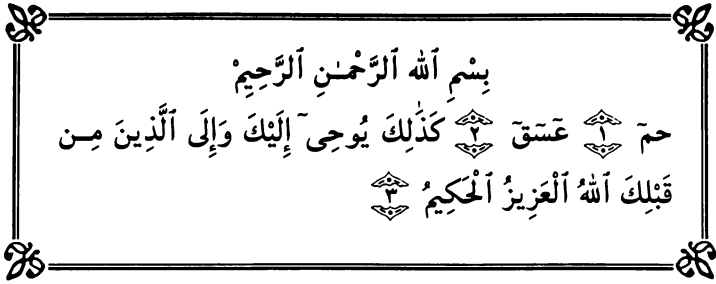 بِسْمِ ٱللهِ ٱلرَّحْمَـٰنِ ٱلرَّحِيمِْ
حمٓ ١ عٓسٓقٓ ٢ كَذَٰلِكَ يُوحِىٓ إِلَيْكَ وَإِلَى ٱلَّذِينَ مِـن
قَبْلِكَ ٱللهُ ٱلْعَزِيزُ ٱلْحَكِيمُ ٣